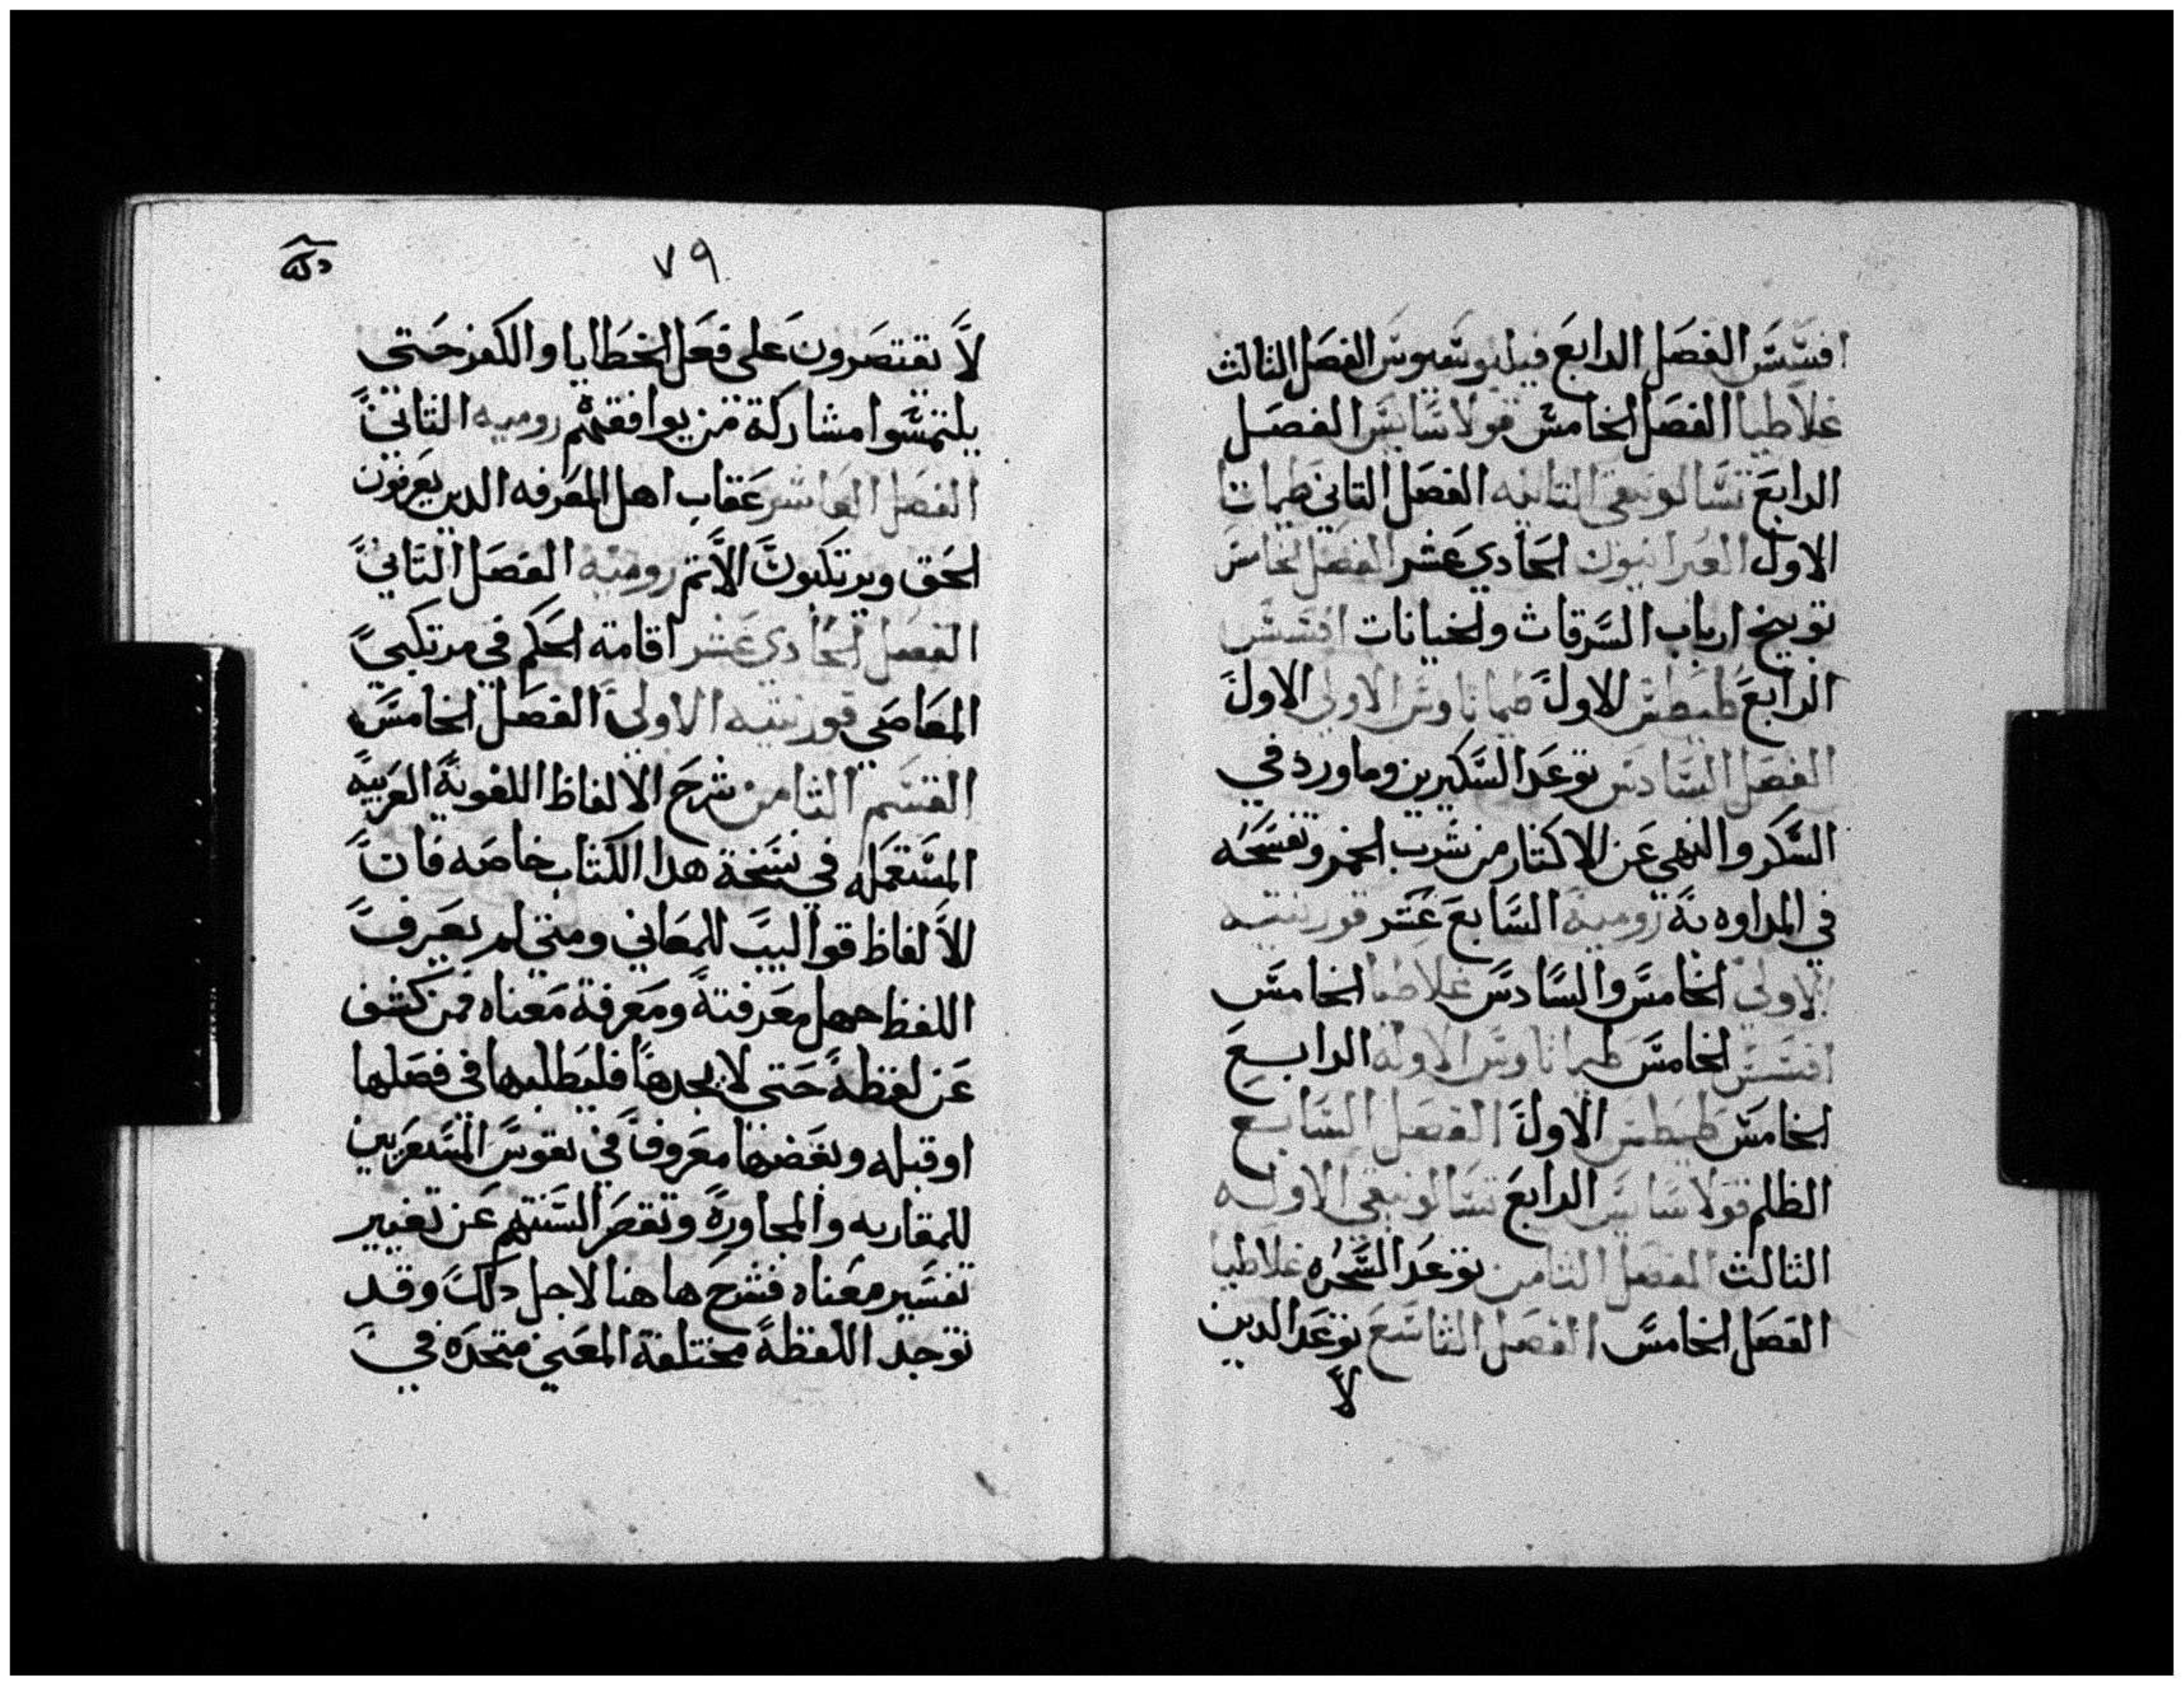 افسَّسَّ الفصَل الرابعَ فيليوسَّيوسَ الفصَل الثالث
غلاطيا الفصَل الخامسَّ قولاسَّايسَّ الفصَل
الرابعَ تسَّالونيقي الثانيه الفصَل الثاني طيماتا
الاول العبرانيون الحادي عَشر الفصَل الخامسَ
توبيخ ارباب السَّرقات والخيانات افسَسَّ
الرابعَ طيطسَّ الاولَ طيماتاوسَّ الاولي الاولَ
الفصَل السَّادسَّ توعَد السَّكيرين وما ورد في
السَّكر والنهي عَن الاكثار من شرب الخمر وتفسَحَه
في المداوه به روميه السَّابعَ عَشر قورنتيه
الاولي الخامسَّ والسَّادسَّ غلاطيا الخامسَّ
افسَسَّ الخامسَّ طيماتاوسَّ الاوله الرابعَ
الخامسَّ طيطسَّ الاولَ الفصَل السَّابع
الظلم قولاسَّايسَّ الرابعَ تسَّالونيقي الاوله
الثالث الفصَل الثامن توعَد السَّحَره غلاطيا
الفصَل الخامسَّ الفصَل التاسَّعَ توعَد الدين
لاَ
٧٩
لاَّ يقتصَرونَ عَلي فعَل الخطَايا والكفر حَتي
يلتمسَّوا مشاركة من يوافقهم روميه الثانيَ
الفصَل العَاشر عَقاب اهل المعَرفه الدين يعَرفون
الحَق ويرتكبونَ الاَّتم روميه الفصَل الثاني
الفصَل الحَادي عَشر اقامة الحَكم في مرتكبي
المعَاصَي قورنتيه الاولي الفصَل الخامسَّ
القسَّم الثامن شرحَ الالفاظ اللغويةَ العَربيه
المسَّتعَمله في نسَّخة هدا الكتاب خاصَه فانَ
الاَلفاظ قواليبَ للمعَاني ومتي لم يعَرفَ
اللفظ جهل معَرفتةَ ومعَرفة معَناه فمن كشف
عَن لفظةَ حَتي لا يجدهاَ فليطَلبها في فصَلها
او قبله وبعَضَها معَروفاَ في نفوسَّ المسَّتعَربين
للمقاربه والمجاورةَ وتقصَر السَّنتهم عَن تغيير
تفسَّير معَناه فشرحَ هاهنا لاجل دلكَ وقد
توجد اللفظةَ مختلفة المعَني متحَدَه في